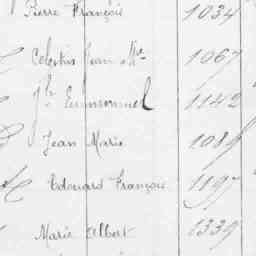 Pierre François 1034
Celestin Jean Mie 1067
Jh Emmanuel 1142
Jean Marie 1089
Edouard François 1197
Marie Albert 1339